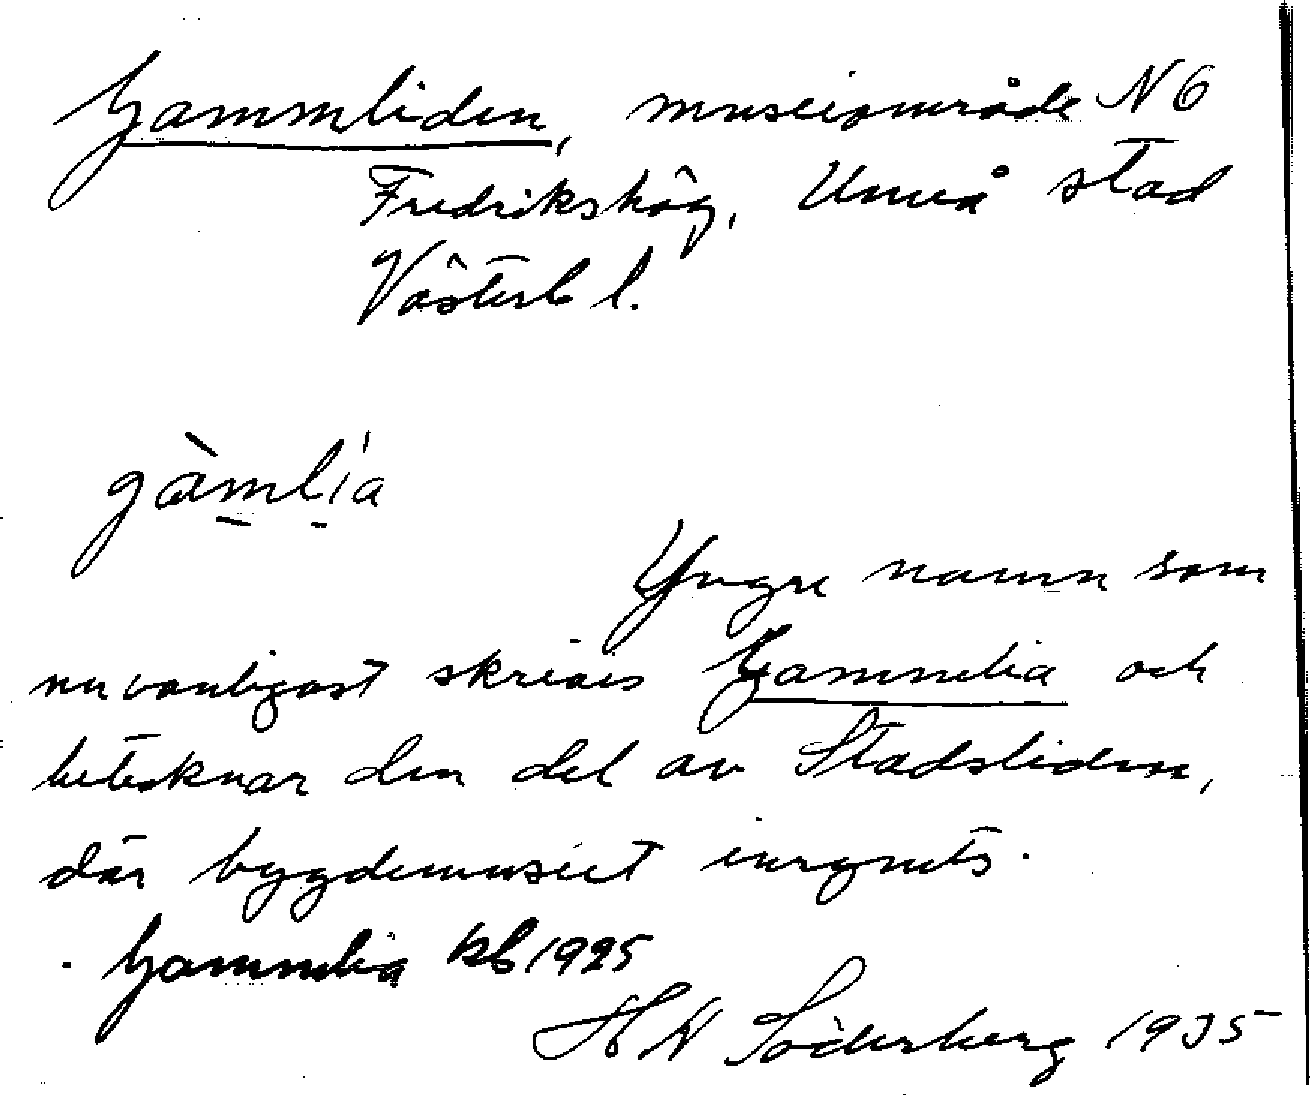 Gammliden, museiområde N 6
Fredrikshög, Umeå stad
Västerb l.
gàmlía
Yngre namn som
nu vanligast skrives Gammlia och
betecknar den del av Stadsliden,
där bygdemuseet inrymts.
. Gammlia kb 1925
H N Söderberg 1935